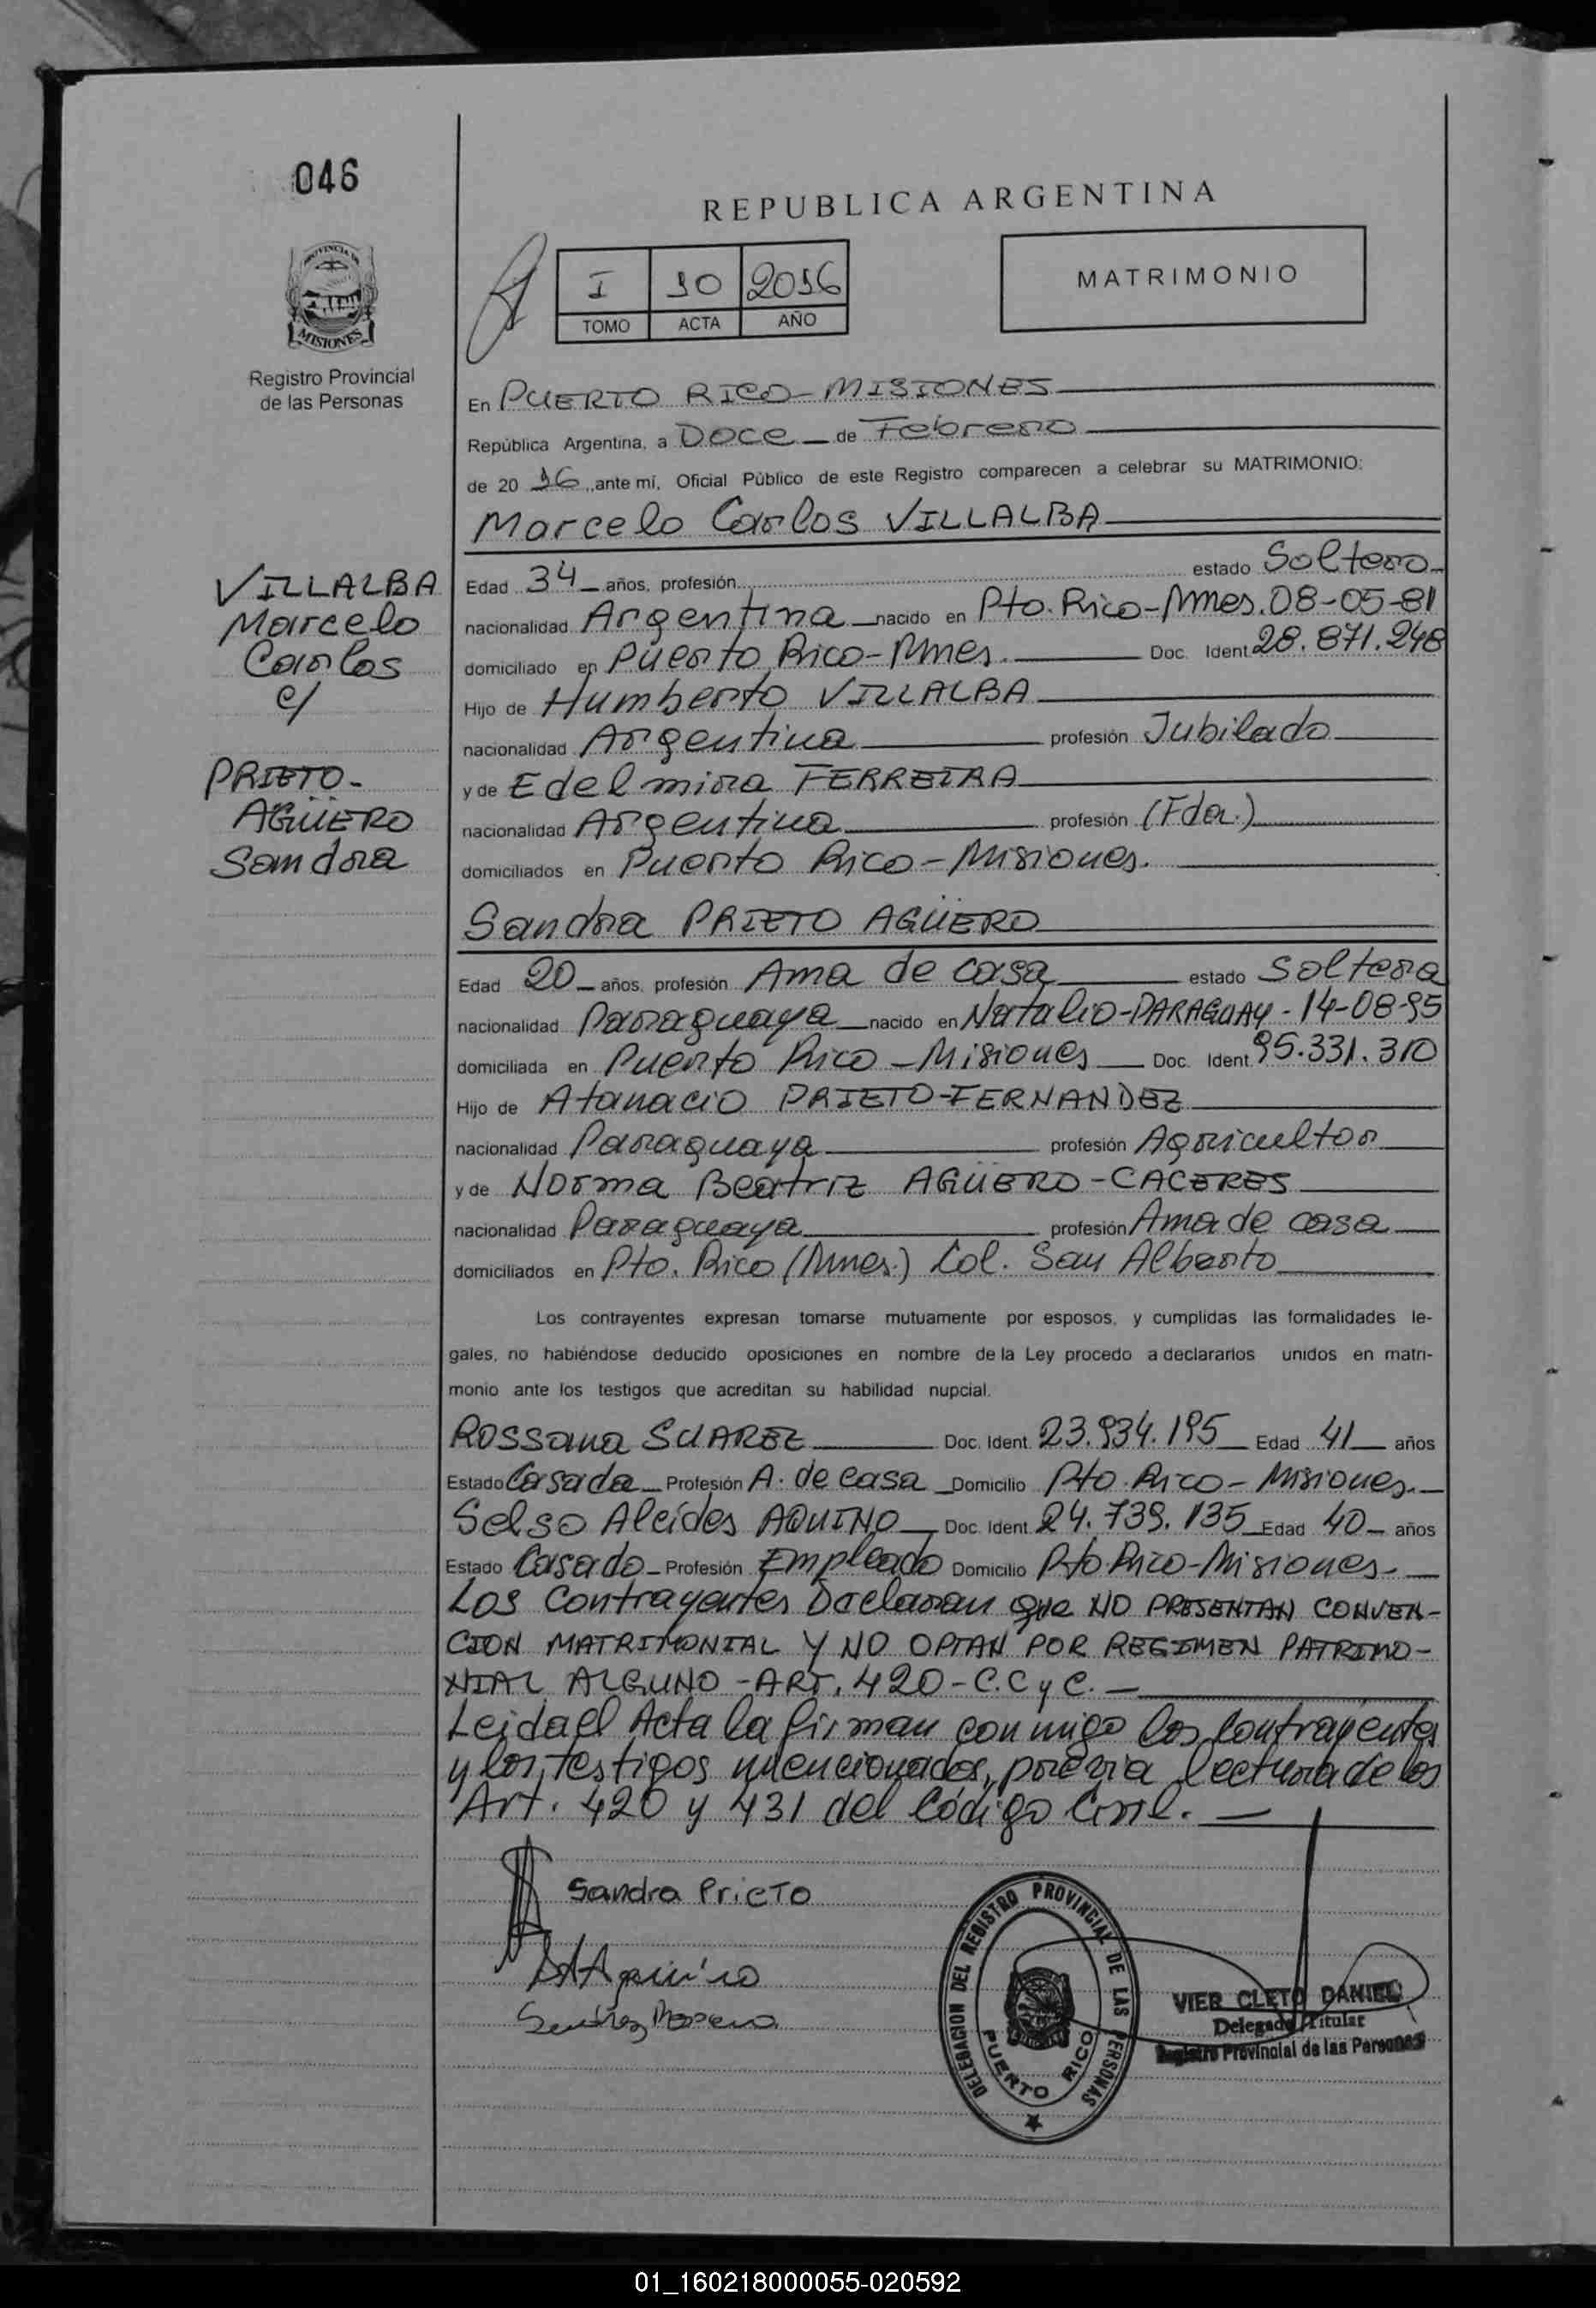 046
REPUBLICA ARGENTINA
PROVINCIA DE
MISIONES
Registro Provincial
de las Personas
I 10 2016
TOMO ACTA AÑO
MATRIMONIO
En PUERTO RICO-MISIONES
República Argentina, a Doce de Febrero
de 20 16, ante mí, Oficial Público de este Registro comparecen a celebrar su MATRIMONIO:
Marcelo Carlos VILLALBA
VILLALBA
Marcelo
Carlos
c/
PRIETO-
AGÜERO
Sandra
Edad 34 años, profesión estado Soltero
nacionalidad Argentina nacido en Pto. Rico-Mnes. 08-05-81
domiciliado en Puerto Rico-Mnes. Doc. Ident. 28.871.248
Hijo de Humberto VILLALBA
nacionalidad Argentina profesión Jubilado
y de Edelmira FERREIRA
nacionalidad Argentina profesión (Fda.)
domiciliados en Puerto Rico-Misiones.
Sandra PRIETO AGÜERO
Edad 20 años, profesión Ama de casa estado Soltera
nacionalidad Paraguaya nacido en Natalio-PARAGUAY-14-08-95
domiciliada en Puerto Rico-Misiones Doc. Ident. 95.331.310
Hijo de Atanacio PRIETO-FERNANDEZ
nacionalidad Paraguaya profesión Agricultor
y de Norma Beatriz AGÜERO-CACERES
nacionalidad Paraguaya profesión Ama de casa
domiciliados en Pto. Rico (Mnes.) Col. San Alberto
Los contrayentes expresan tomarse mutuamente por esposos, y cumplidas las formalidades le-
gales, no habiéndose deducido oposiciones en nombre de la Ley procedo a declararlos unidos en matri-
monio ante los testigos que acreditan su habilidad nupcial.
Rossana SUAREZ Doc. Ident. 23.934.195 Edad 41 años
Estado Casada Profesión A. de casa Domicilio Pto. Rico-Misiones.
Selso Alcides AQUINO Doc. Ident. 24.739.135 Edad 40 años
Estado Casado Profesión Empleado Domicilio Pto. Rico-Misiones.
Los Contrayentes Declaran que NO PRESENTAN CONVEN-
CION MATRIMONIAL Y NO OPTAN POR REGIMEN PATRIMO-
NIAL ALGUNO-ART. 420-C.C y C.
Leida el Acta la firman conmigo los contrayentes
y los testigos mencionados, previa lectura de los
Art. 420 y 431 del Código Civil.
Sandra Prieto
DELEGACION DEL REGISTRO PROVINCIAL DE LAS PERSONAS
PUERTO RICO
VIER CLETO DANIEL
Delegado Titular
Registro Provincial de las Personas
01_160218000055-020592